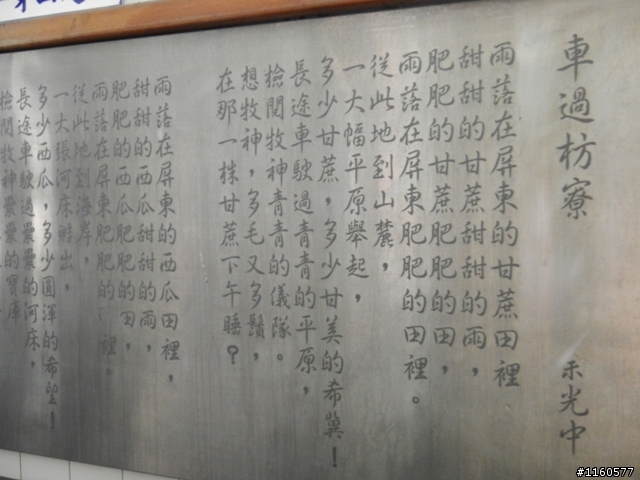 車過枋寮
余光中
雨落在屏東的甘蔗田裡
甜甜的甘蔗甜甜的雨,
肥肥的甘蔗肥肥的田,
雨落在屏東肥肥的田裡。
從此地到山麓,
一大幅平原舉起,
多少甘蔗,多少甘美的希冀!
長途車駛過青青的平原,
檢閱牧神青青的儀隊。
想牧神,多毛又多鬚,
在那一株甘蔗下午睡?
雨落在屏東的西瓜田裡,
甜甜的西瓜甜甜的雨,
肥肥的西瓜肥肥的田,
雨落在屏東肥肥的 裡。
從此地到海岸,
一大張河床孵出,
多少西瓜,多少圓渾的希望!
長途車駛過纍纍的河床,
檢閱牧神纍纍的寶庫
#1160577